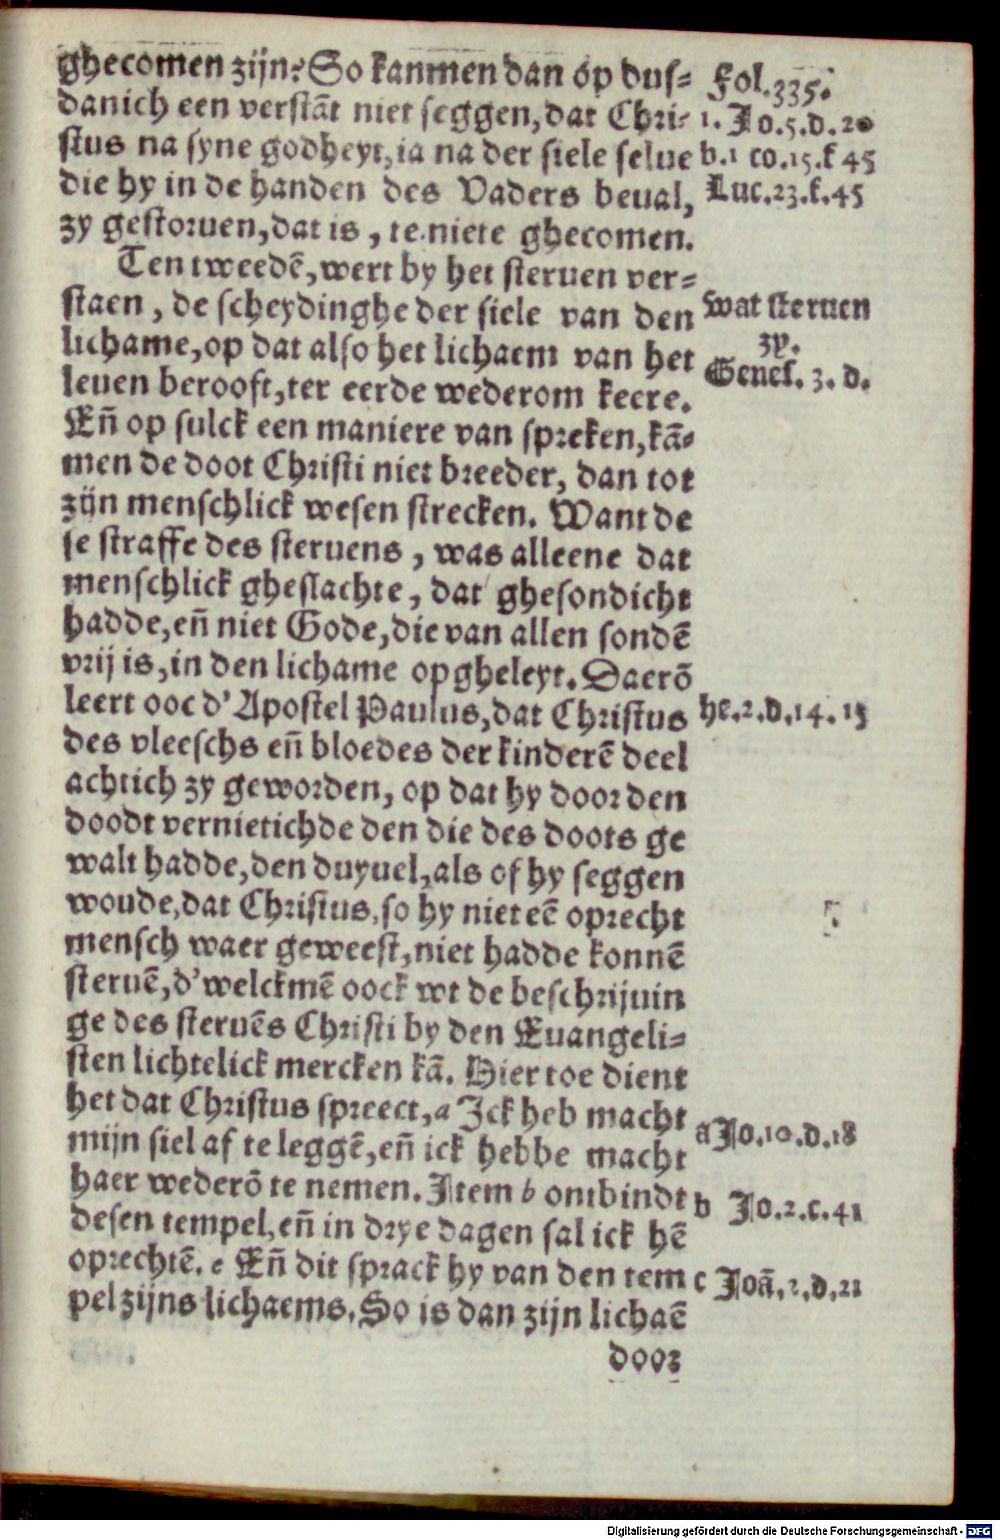 ghecomen zijn? So kanmen dan op dus-
danich een verstãt niet seggen, dat Chri-
stus na syne godheyt, ia na der siele selue
die hy in de handen des Vaders beual,
zy gestoruen, dat is, te niete ghecomen.
Ten tweedẽ, wert by het steruen ver-
staen, de scheydinghe der siele van den
lichame, op dat also het lichaem van het
leuen berooft, ter eerde wederom keere.
Eñ op sulck een maniere van spreken, kã-
men de doot Christi niet breeder, dan tot
zijn menschlick wesen strecken. Want de
se straffe des steruens, was alleene dat
menschlick gheslachte, dat ghesondicht
hadde, eñ niet Gode, die van allen sondẽ
vrij is, in den lichame opgheleyt. Daerõ
leert ooc d'Apostel Paulus, dat Christus
des vleeschs eñ bloedes der kinderẽ deel
achtich zy geworden, op dat hy door den
doodt vernietichde den die des doots ge
walt hadde, den duyuel, als of hy seggen
woude, dat Christus, so hy niet eẽ oprecht
mensch waer geweest, niet hadde konnẽ
steruẽ, d'welckmẽ oock wt de beschrijuin
ge des steruẽs Christi by den Euangeli-
sten lichtelick mercken kã. Hier toe dient
het dat Christus spreect, a Jck heb macht
mijn siel af te leggẽ, eñ ick hebbe macht
haer wederõ te nemen. Jtem b ontbindt
desen tempel, eñ in drye dagen sal ick hẽ
oprechtẽ. c Eñ dit sprack hy van den tem
pel zijns lichaems. So is dan zijn lichaẽ
door
Fol. 335.
1. Jo. 5. d. 20
b. 1 co. 15. f 45
Luc. 23. f. 45
wat steruen
zy.
Genes. 3. d.
he. 2. d. 14. 15
a Jo. 10. d. 18
b Jo. 2. c. 41
c Joã. 2. d. 21
Digitalisierung gefördert durch die Deutsche Forschungsgemeinschaft - DFG